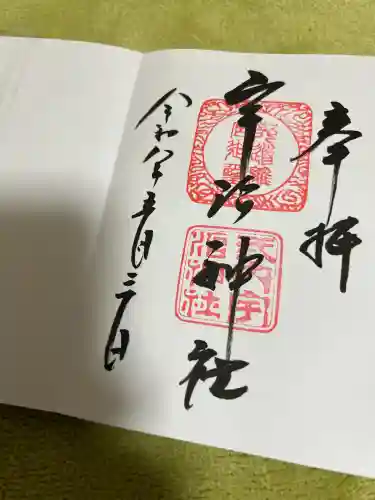 奉拝
宇治神社
令和八年五月三日